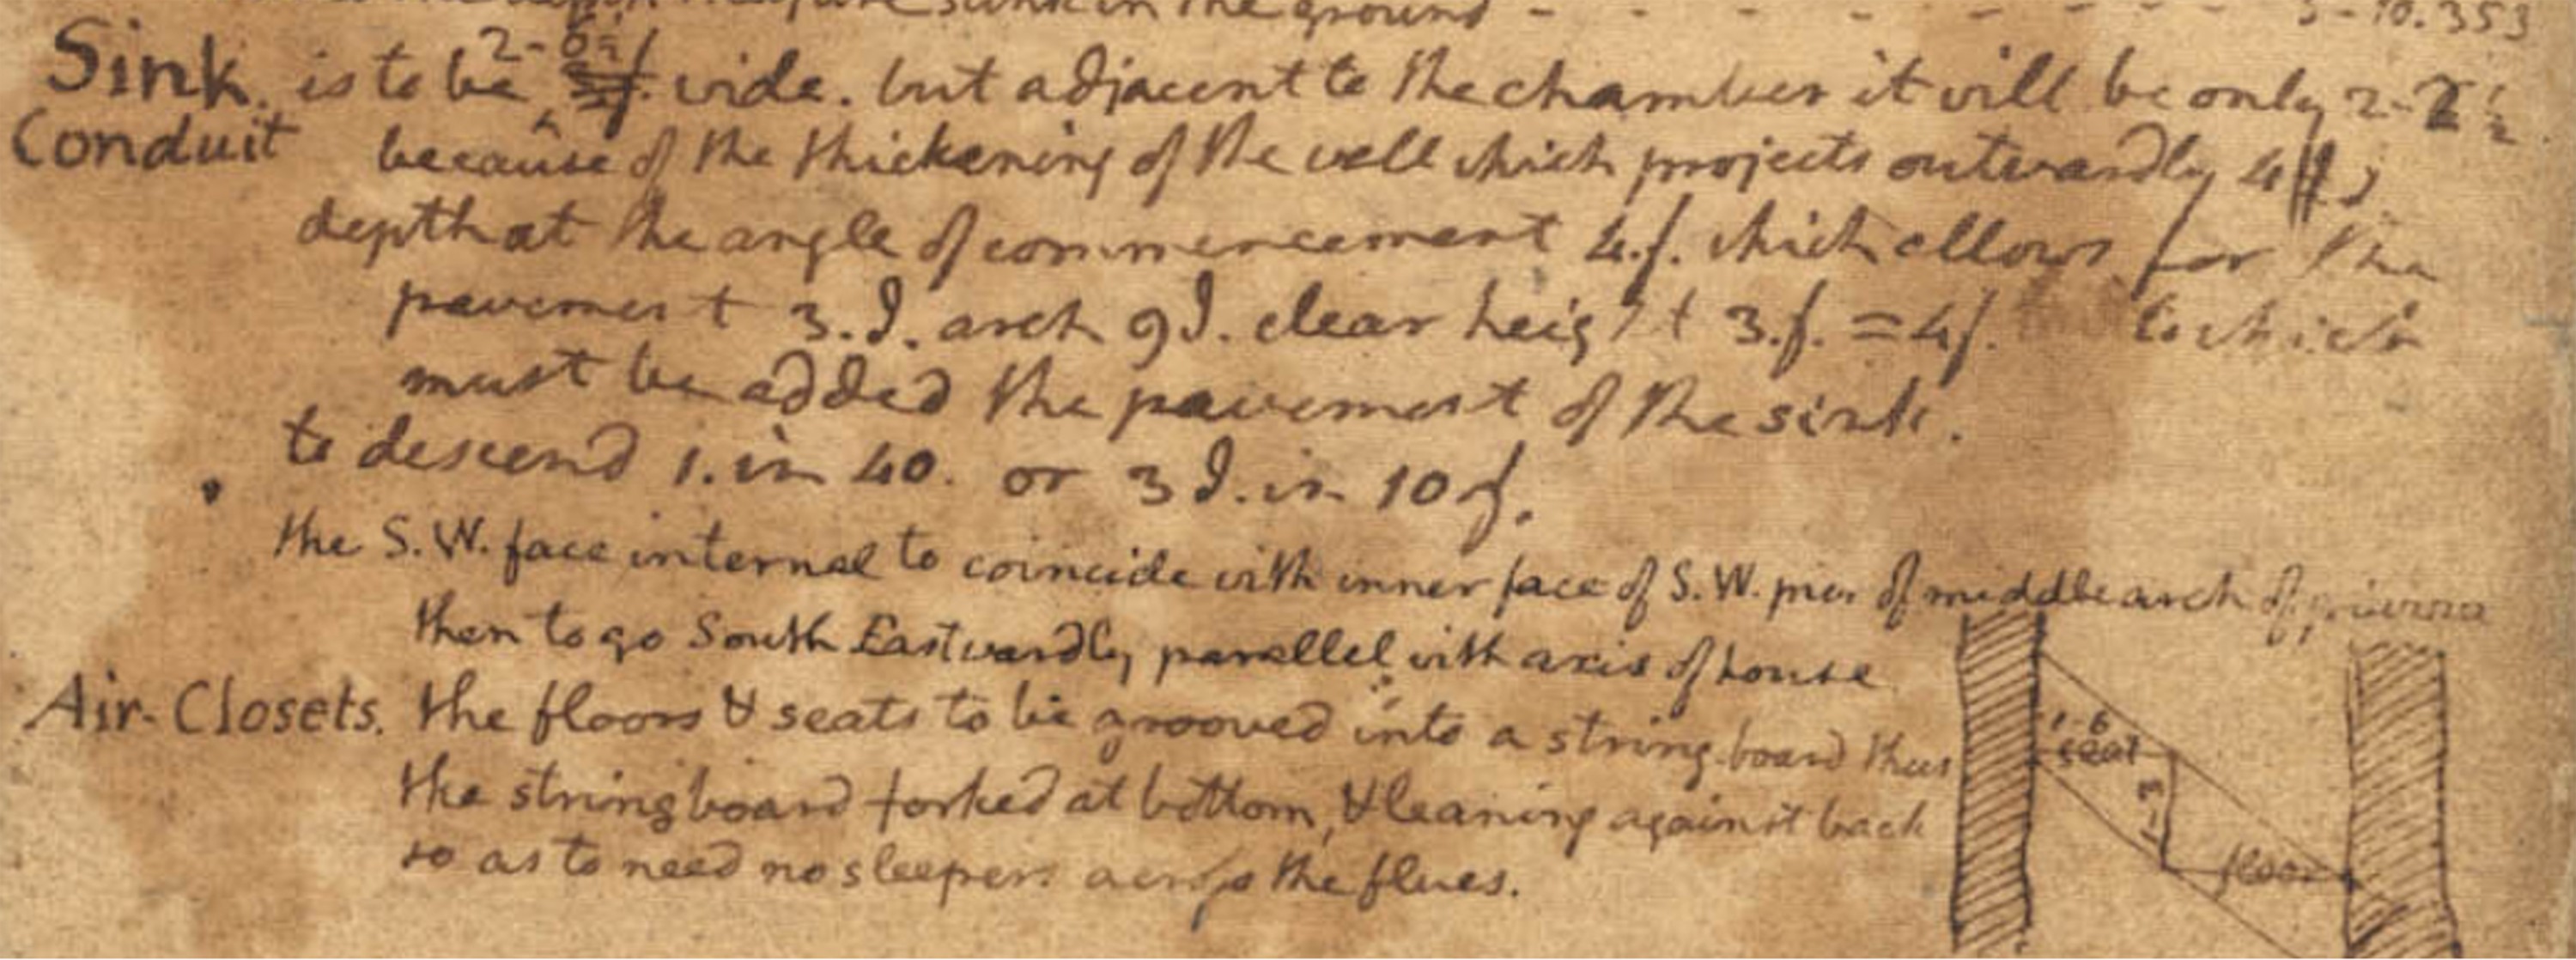 sunk in the ground - - - - - - - - 3-10.353
Sink is to be 2-6 wide. but adjacent to the chamber it will be only 2-2 1/2
Conduit because of the thickening of the wall which projects outwardly 4
depth at the angle of commencement 4.f. which allows for the
pavement 3.I. arch 9I. clear height 3.f. = 4f. to which
must be added the pavement of the sink.
to descend 1. in 40. or 3I. in 10f.
the S.W. face internal to coincide with inner face of S.W. pier of middle arch of
then to go South Eastwardly parallel with axis of house
Air-Closets. the floors & seats to be grooved into a string board thus
the string board forked at bottom, & leaning against back
so as to need no sleepers across the flues.
1-6
seat
1-3
floor